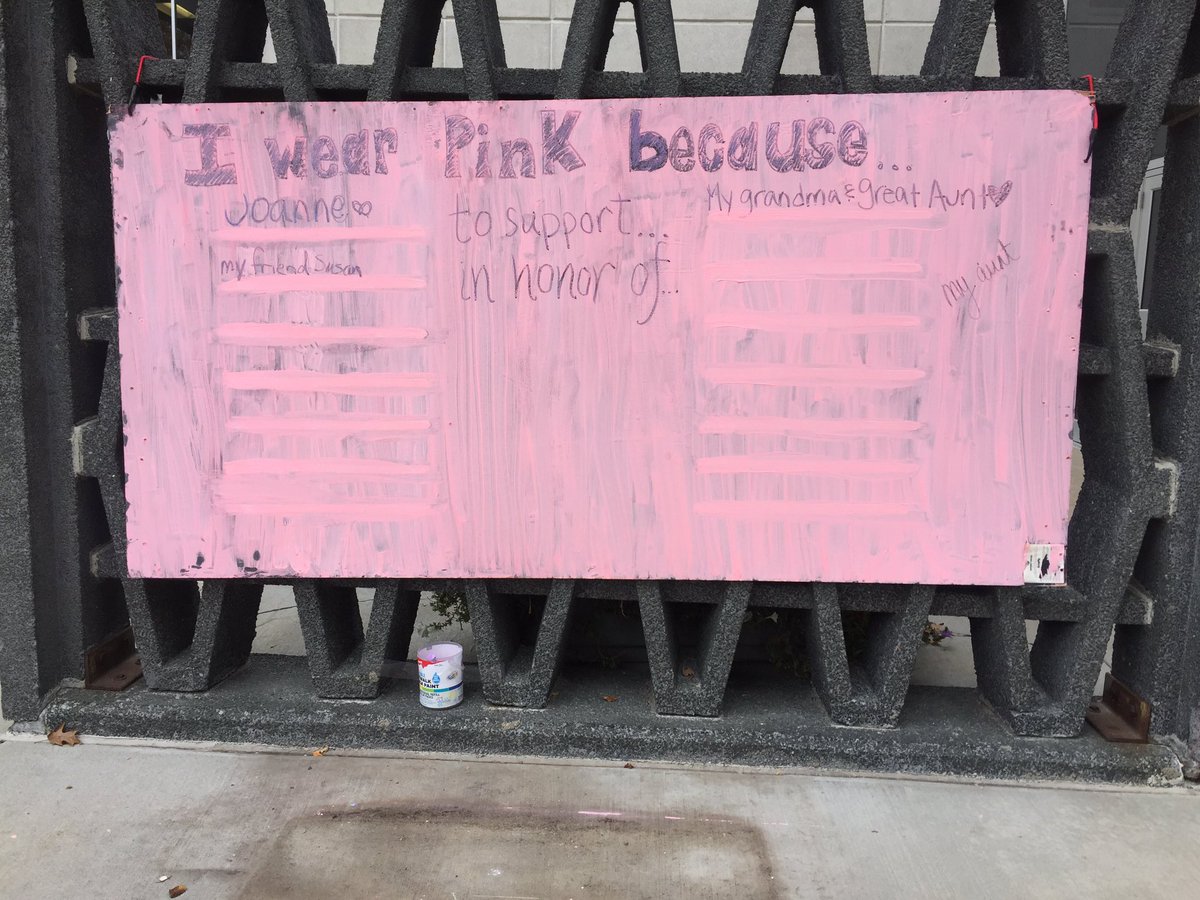 I wear Pink because...
Joanne
my friend Susan
to support...
in honor of...
My grandma & great Aunt
my aunt